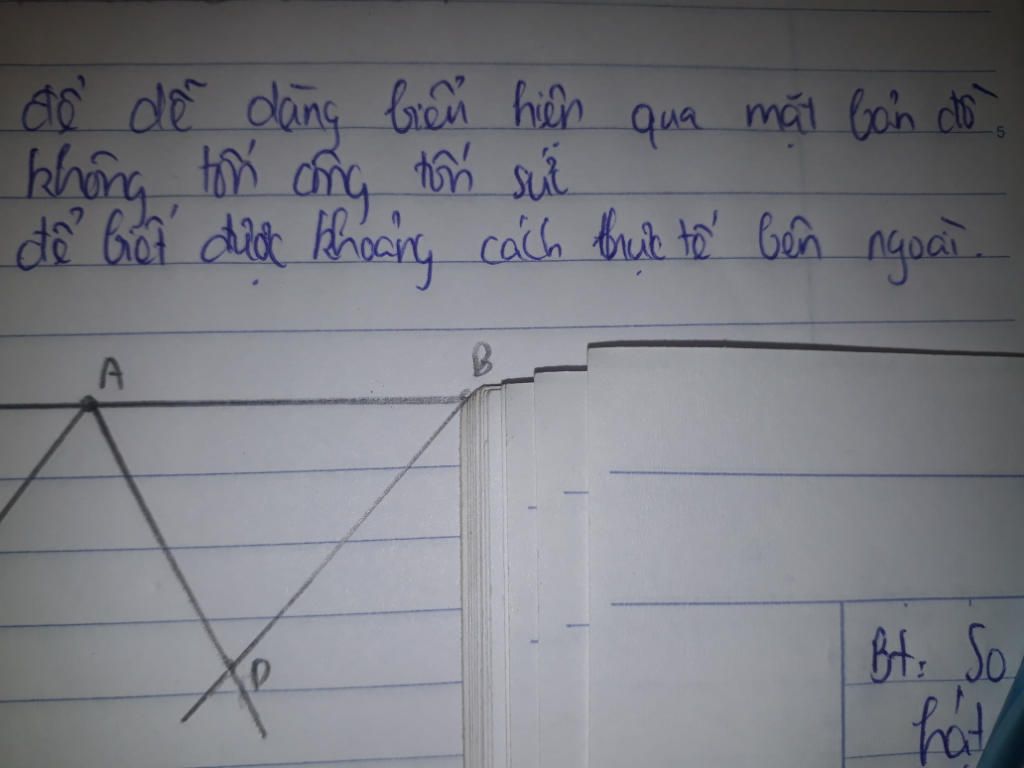 để dễ dàng biểu hiện qua mặt bản đồ
5
không tốn công tốn sức
để biết được khoảng cách thực tế bên ngoài.
A
B
D
Bt: So
hát